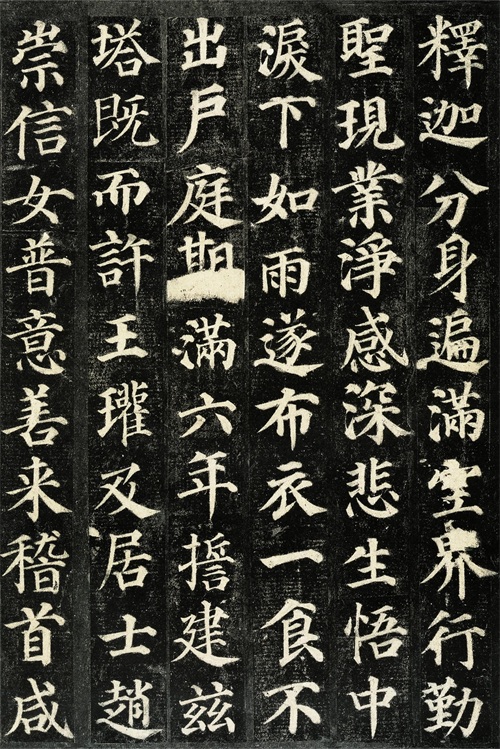 釋迦分身遍滿空界行勤
聖現業淨感深悲生悟中
淚下如雨遂布衣一食不
出戶庭期滿六年誓建茲
塔既而許王瓘及居士趙
崇信女普意善来稽首咸